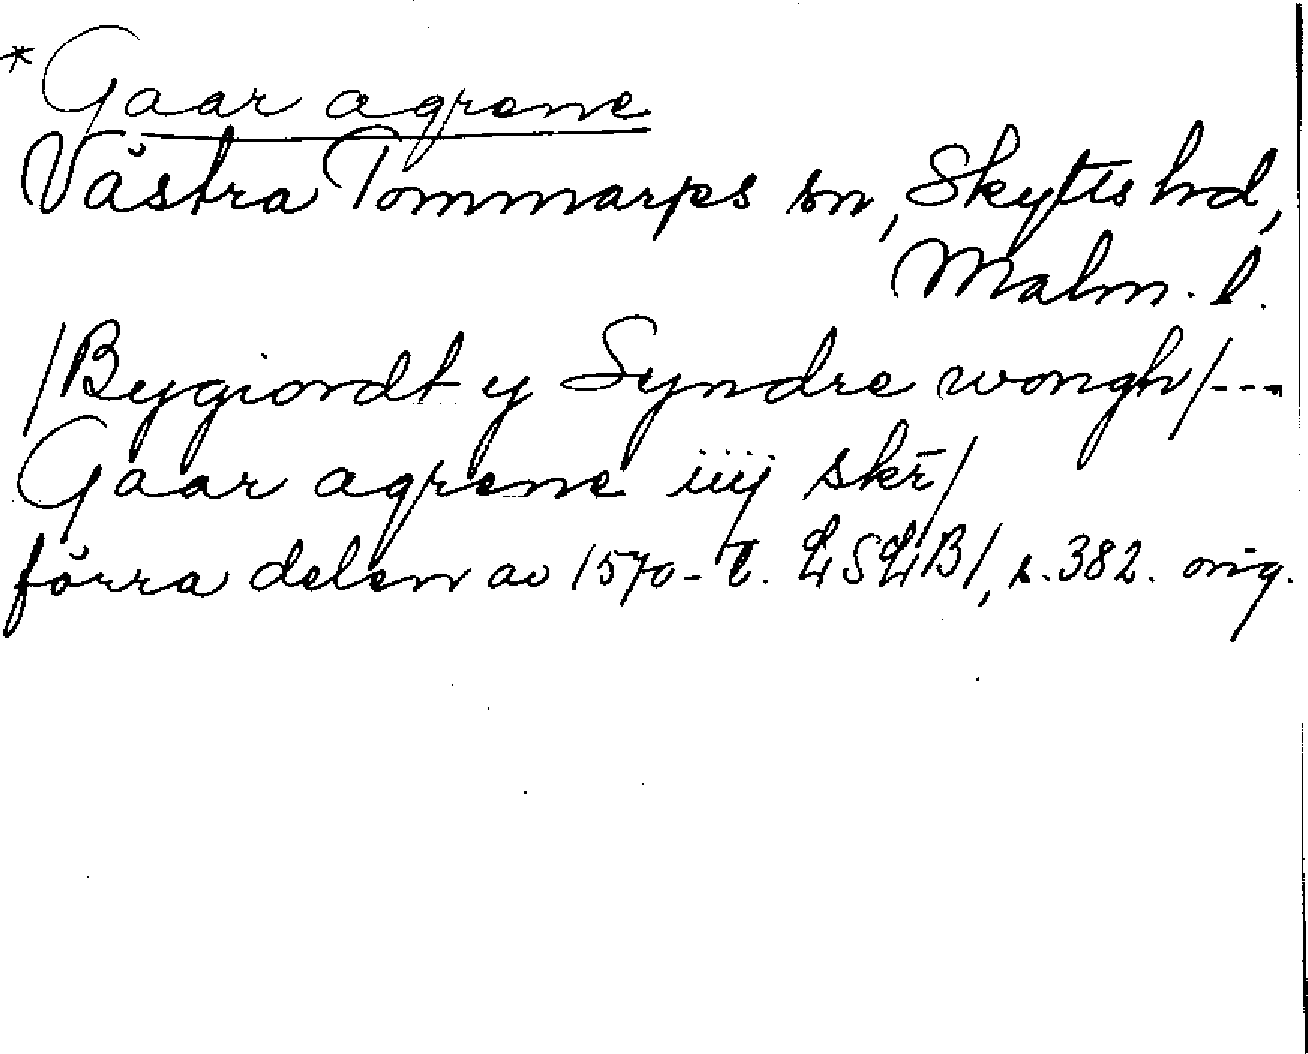 *Gaar agrene
Västra Tommarps sn, Skytts hd,
Malm. l.
/Bygiordt y Syndre wongh/---
Gaar agrene iiij skr̄/
förra delen av 1570-t. LSLB1, s. 382. orig.